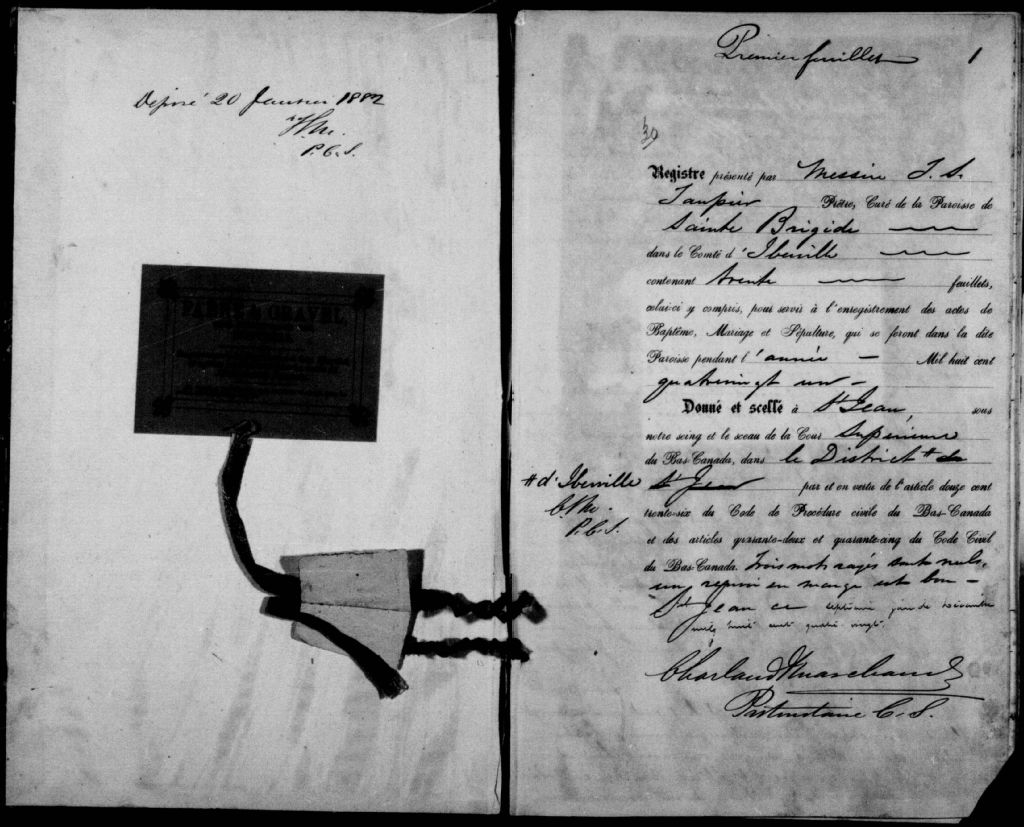 Déposé 20 Janvier 1882
P. C. S.
PAYETTE & GRAVEL
Premier feuillet 1
30
Registre présenté par Messire J. S.
Taupier Prêtre, Curé de la Paroisse de
Sainte Brigide
dans le Comté d'Iberville
contenant trente feuillets,
celui-ci y compris, pour servir à l'enregistrement des actes de
Baptême, Mariage et Sépulture, qui se feront dans la dite
Paroisse pendant l'année — Mil huit cent
quatrevingt un —
Donné et scellé à St Jean, sous
notre seing et le sceau de la Cour Supérieure
du Bas-Canada, dans le District # de
# d'Iberville St Jean par et en vertu de l'article douze cent
trente-six du Code de Procédure civile du Bas-Canada
P. C. S.
et des articles quarante-deux et quarante-cinq du Code Civil
du Bas-Canada. Trois mots rayés sont nuls,
un renvoi en marge est bon —
St Jean ce septième jour de décembre
mil huit cent quatre vingt.
Charland & Marchand
Protonotaire C. S.